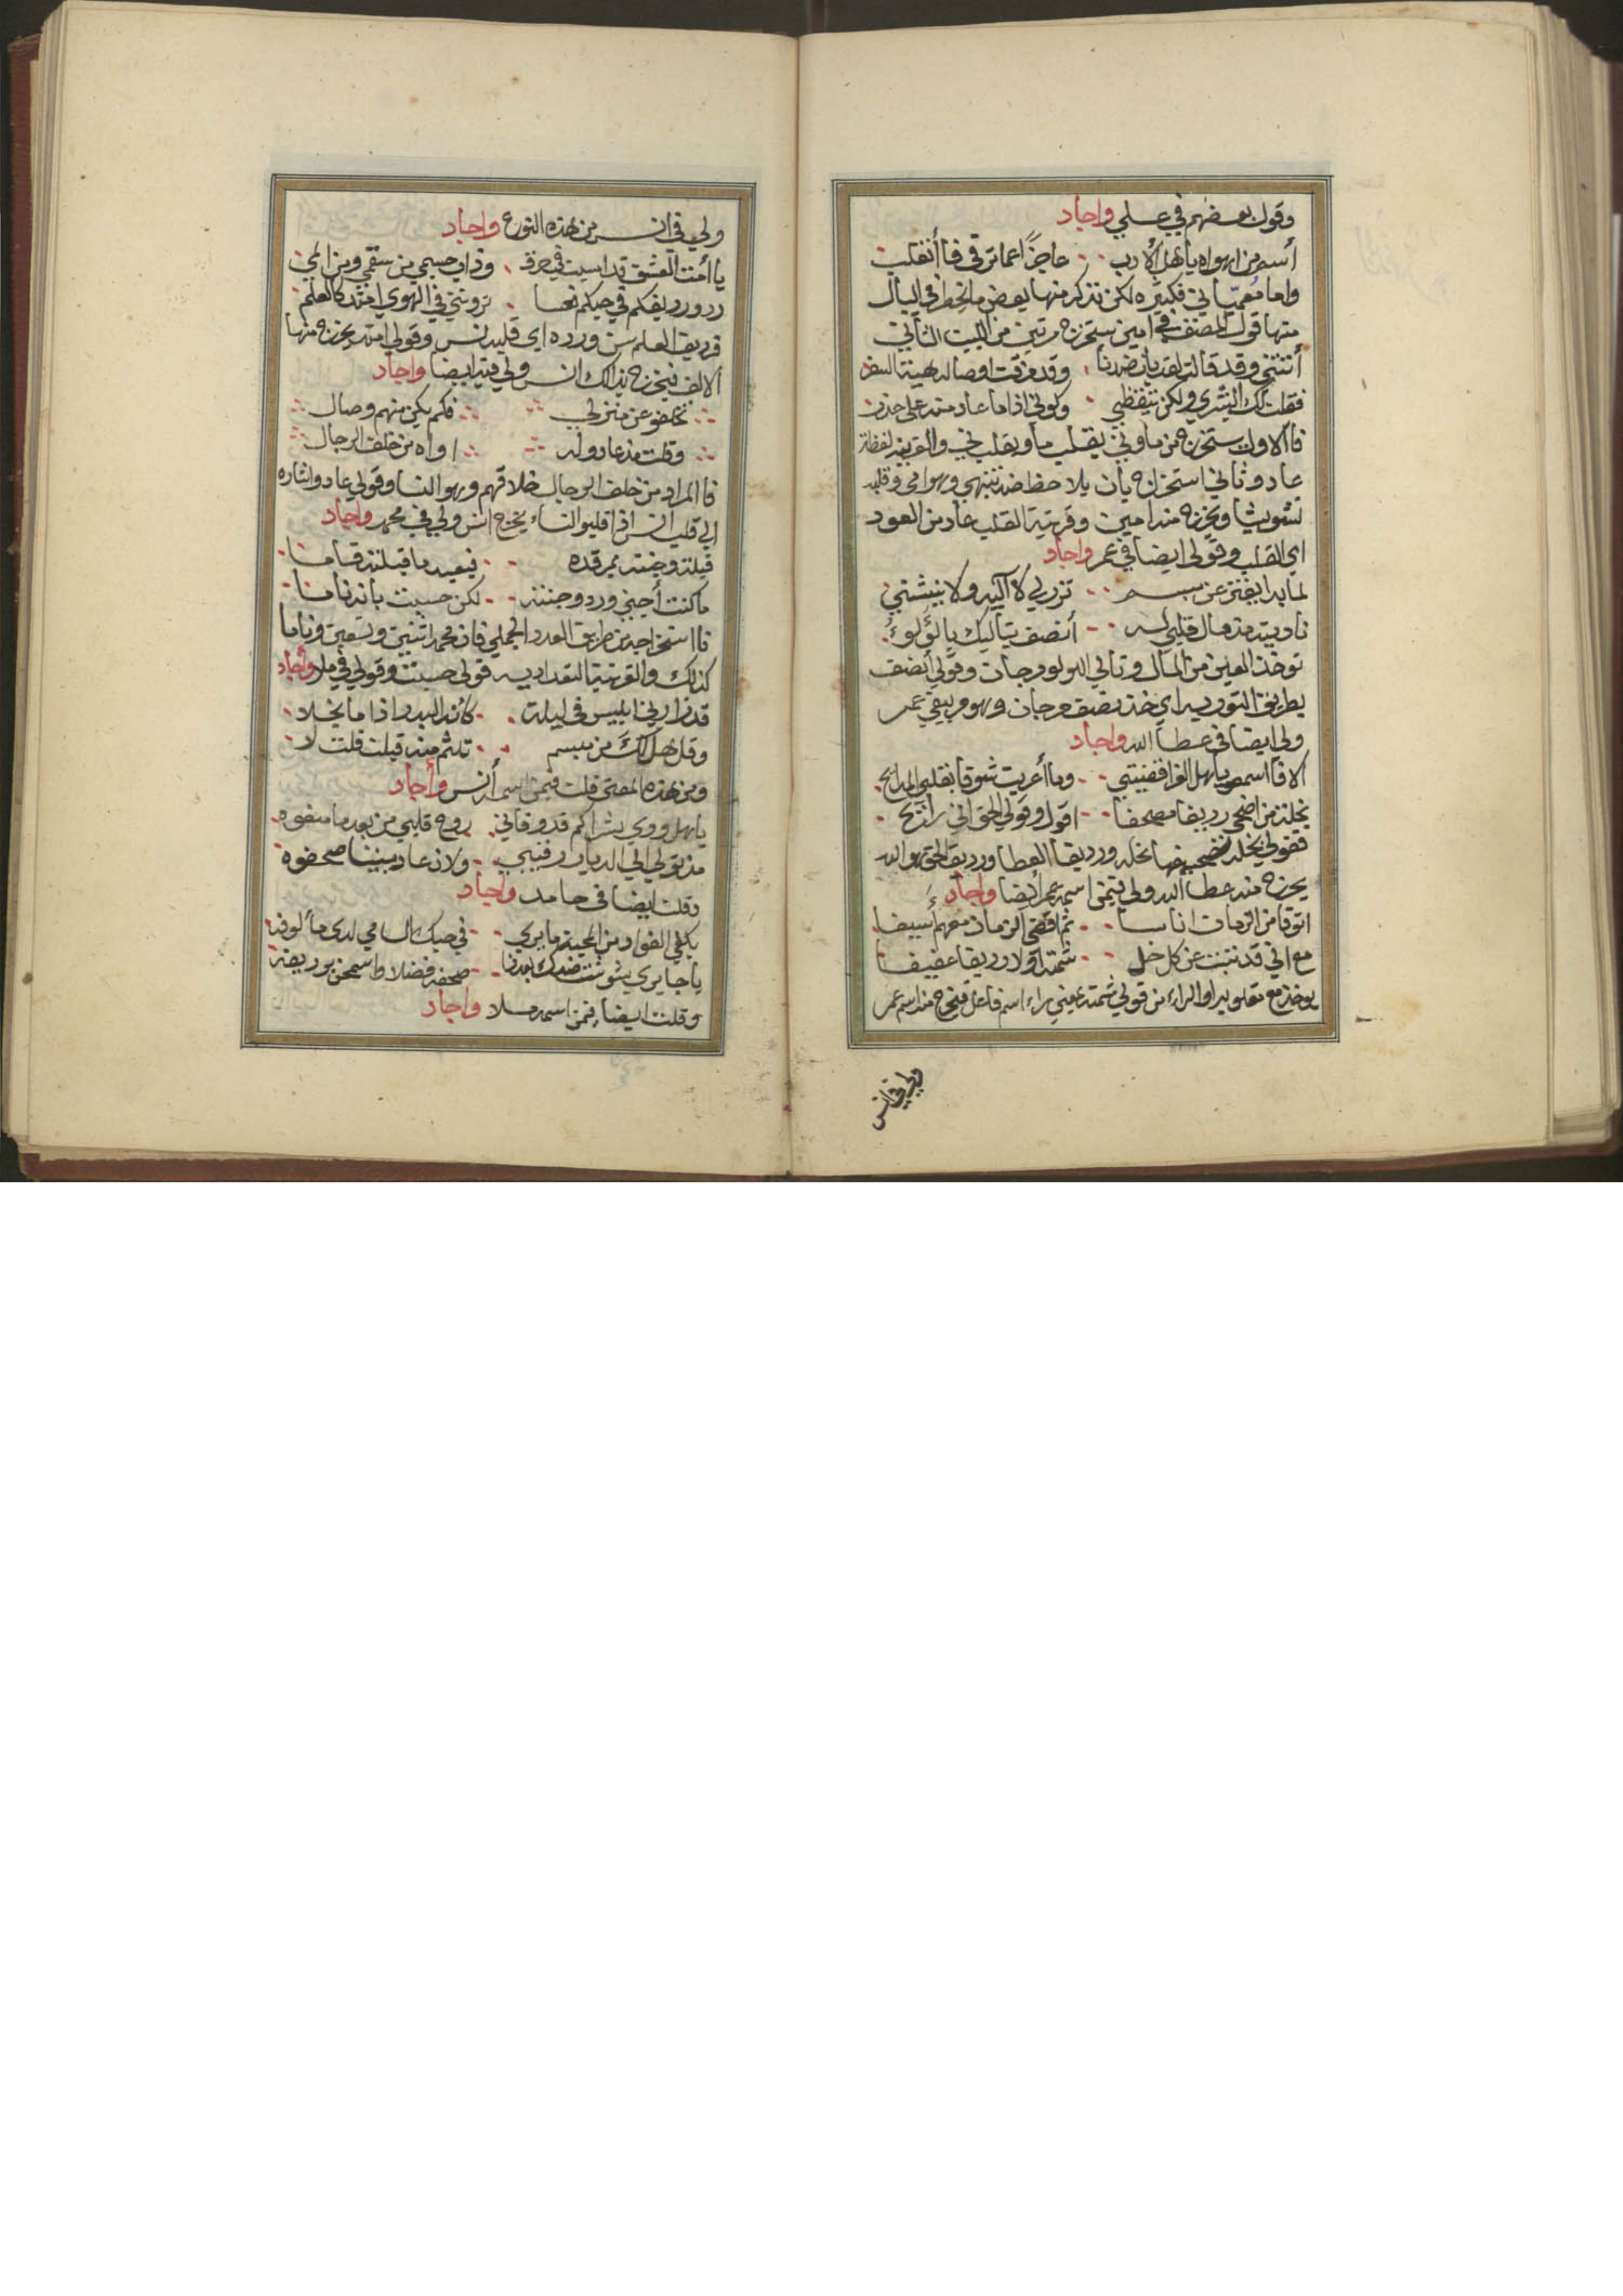 وقول بعضهم في علي واجاد
أسم من اهواه يا أهل الأدب عاجزًا عما ترقى فا أنقلب
واما معمياتي فكثيره لكن نذكر منها بعض ما يخطر في البال
منها قول المصنف في امين يستخرج مرتين من البيت الثاني
أتتني وقد قالت لقد بان ضدنا وقد مزقت اوصاله هيبة السفر
فقلت لك البشرى ولكن تيقظي وكوني اذا ما عاد منه على حذر
فا الاول يستخرج من ما وني يقلب ما ويقلب ني والقرينه لفظة
عاد وثاني استخراج بان يلاحظ ضد تنبهي وهو امي وقلبه
تشويشا ويخرج منه امين وقرينة القلب عاد من العود
اي القلب وقولي ايضا في عمر واجاد
لما بدا يفتر عن مبسم تزري لآليه ولا ينثني
ناديته مذ مال قلبي له أنصف يتاليك يا لؤلؤ
توخذ العين من المال وتالي اللولو مرجان وقولي أنصف
بطريق التوريه اي خذ نصف مرجان وهو مر يبقى عمر
ولي ايضا في عطا الله واجاد
الا فا اسمعو يا اهل الغرا قضيتي وما أعربت شوقا بقلبي المدايح
بخلته من اضحى رديفا مصحفا اقول وقولي الحق اني رانح
فقولي بخلته تصحيفها نحله ورديفا العطا ورديف الحق هو الله
يخرج منه عطا الله ولي فيمن اسمه عمر أيضا واجاد
اتوقا من الزمان اناسا ثم اقضى الزمان معهم أسيفا
مع اني قد نبت عن كل خل شمته اولا وريقا عفيفا
يوخذ مع مقلوبه او الراء من قولي شمته يعني راء اسم فاعل فيخرج منه اسم عمر
ولي في انس
ولي في انس من هذه النوع واجاد
يا أمت العشق قد اسيت في حرق وذاب جسمي من سقمي ومن المي
ردو رديفكم في حبكم نحسا تروني في الهوى امتد كالعلم
فرديف العلم سن ورده اي قلبه نس وقولي امتد يخرج منها
الالف فيخرج بذالك انس ولي فيه ايضا واجاد
نحلفو عن منزلي فكم يكن منهم وصال
وقلت مذ عادو له اواه من خلف الرجال
فا المراد من خلف الرجال خلافهم وهو النسا وقولي عادو اشاره
الى قلب انس اذا قلبو النساء يخرج انس ولي في محمد واجاد
قبلته وجنته بمرقده فيعيد ما قبلته قسامنا
ما كنت أجني ورد وجنته لكن حسبت بانه نامنا
فا استخراجه من طريق العدد الجملي فان محمد اثنين وتسعين وناما
كذلك والقرينة التعداديه قولي حسبت وقولي في ملا واجاد
قد زارني ابليس في ليلة كأنه البدر اذا ما يخلا
وقل هل لك من مبسم تلثم منه قبلت قلت لا
ومن هذه المعنى قلت فيمن اسمه أنس وأجاد
يا اهل ودي بشراكم قد وفاني روح قلبي من بعد ما منعوه
مذ تولي الي الديار رقيبي ولان عاد بيننا صحفوه
وقلت ايضا في حامد واجاد
يكفي الفواد من المحبة ما يرى في حبك السامي لدى مألوفة
يا جايري شوشت ضدك بعدنا صحفه فضلا واسمحن برديفة
وقلت ايضا فيمن اسمه ملا واجاد